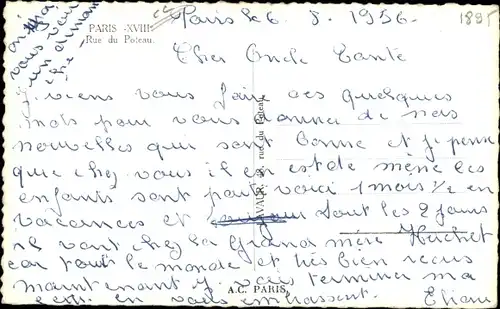 PARIS -XVIII
Rue du Poteau.
Paris le 6. 8. 1956.
1895
Cher Oncle Tante
Je viens vous faire ces quelques
mots pour vous donner de nos
nouvelles qui sont bonne et je pense
que chez vous il en est de même les
enfants sont parti voici 1 mois ½ en
vacances et sont les 2 jours
ils vont chez la Grand mère
car tout le monde et très bien reçus
maintenant je vais terminer ma
en vous embrassant. Eliane
rue du Poteau
A.C. PARIS.